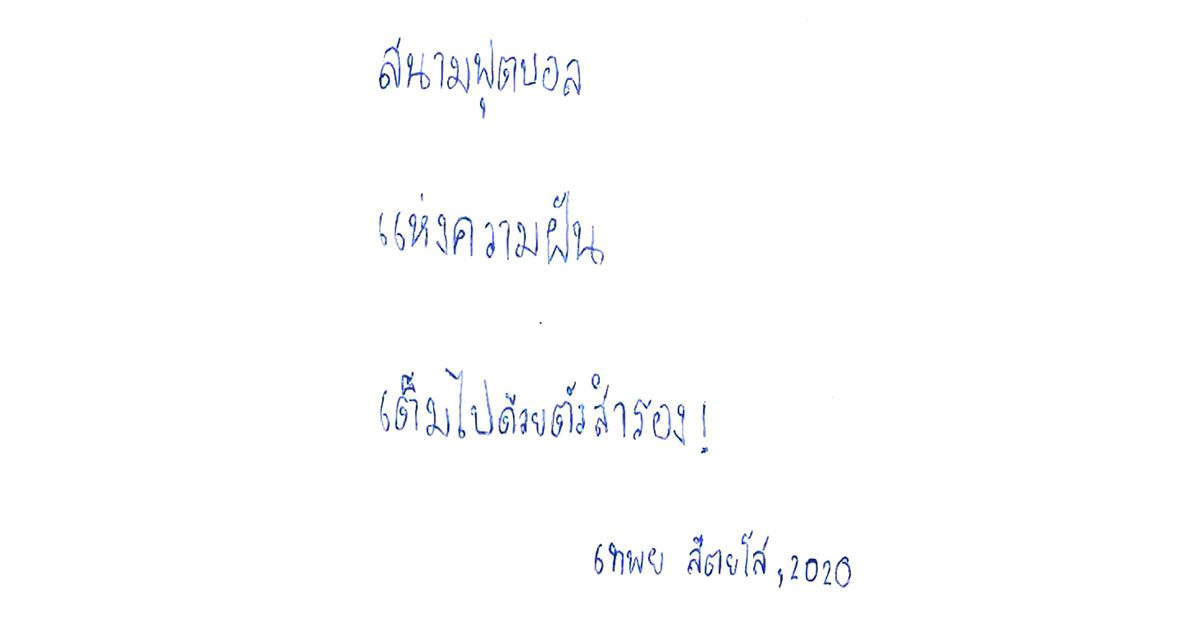 สนามฟุตบอล
แห่งความฝัน
เต็มไปด้วยตัวสำรอง!
2020